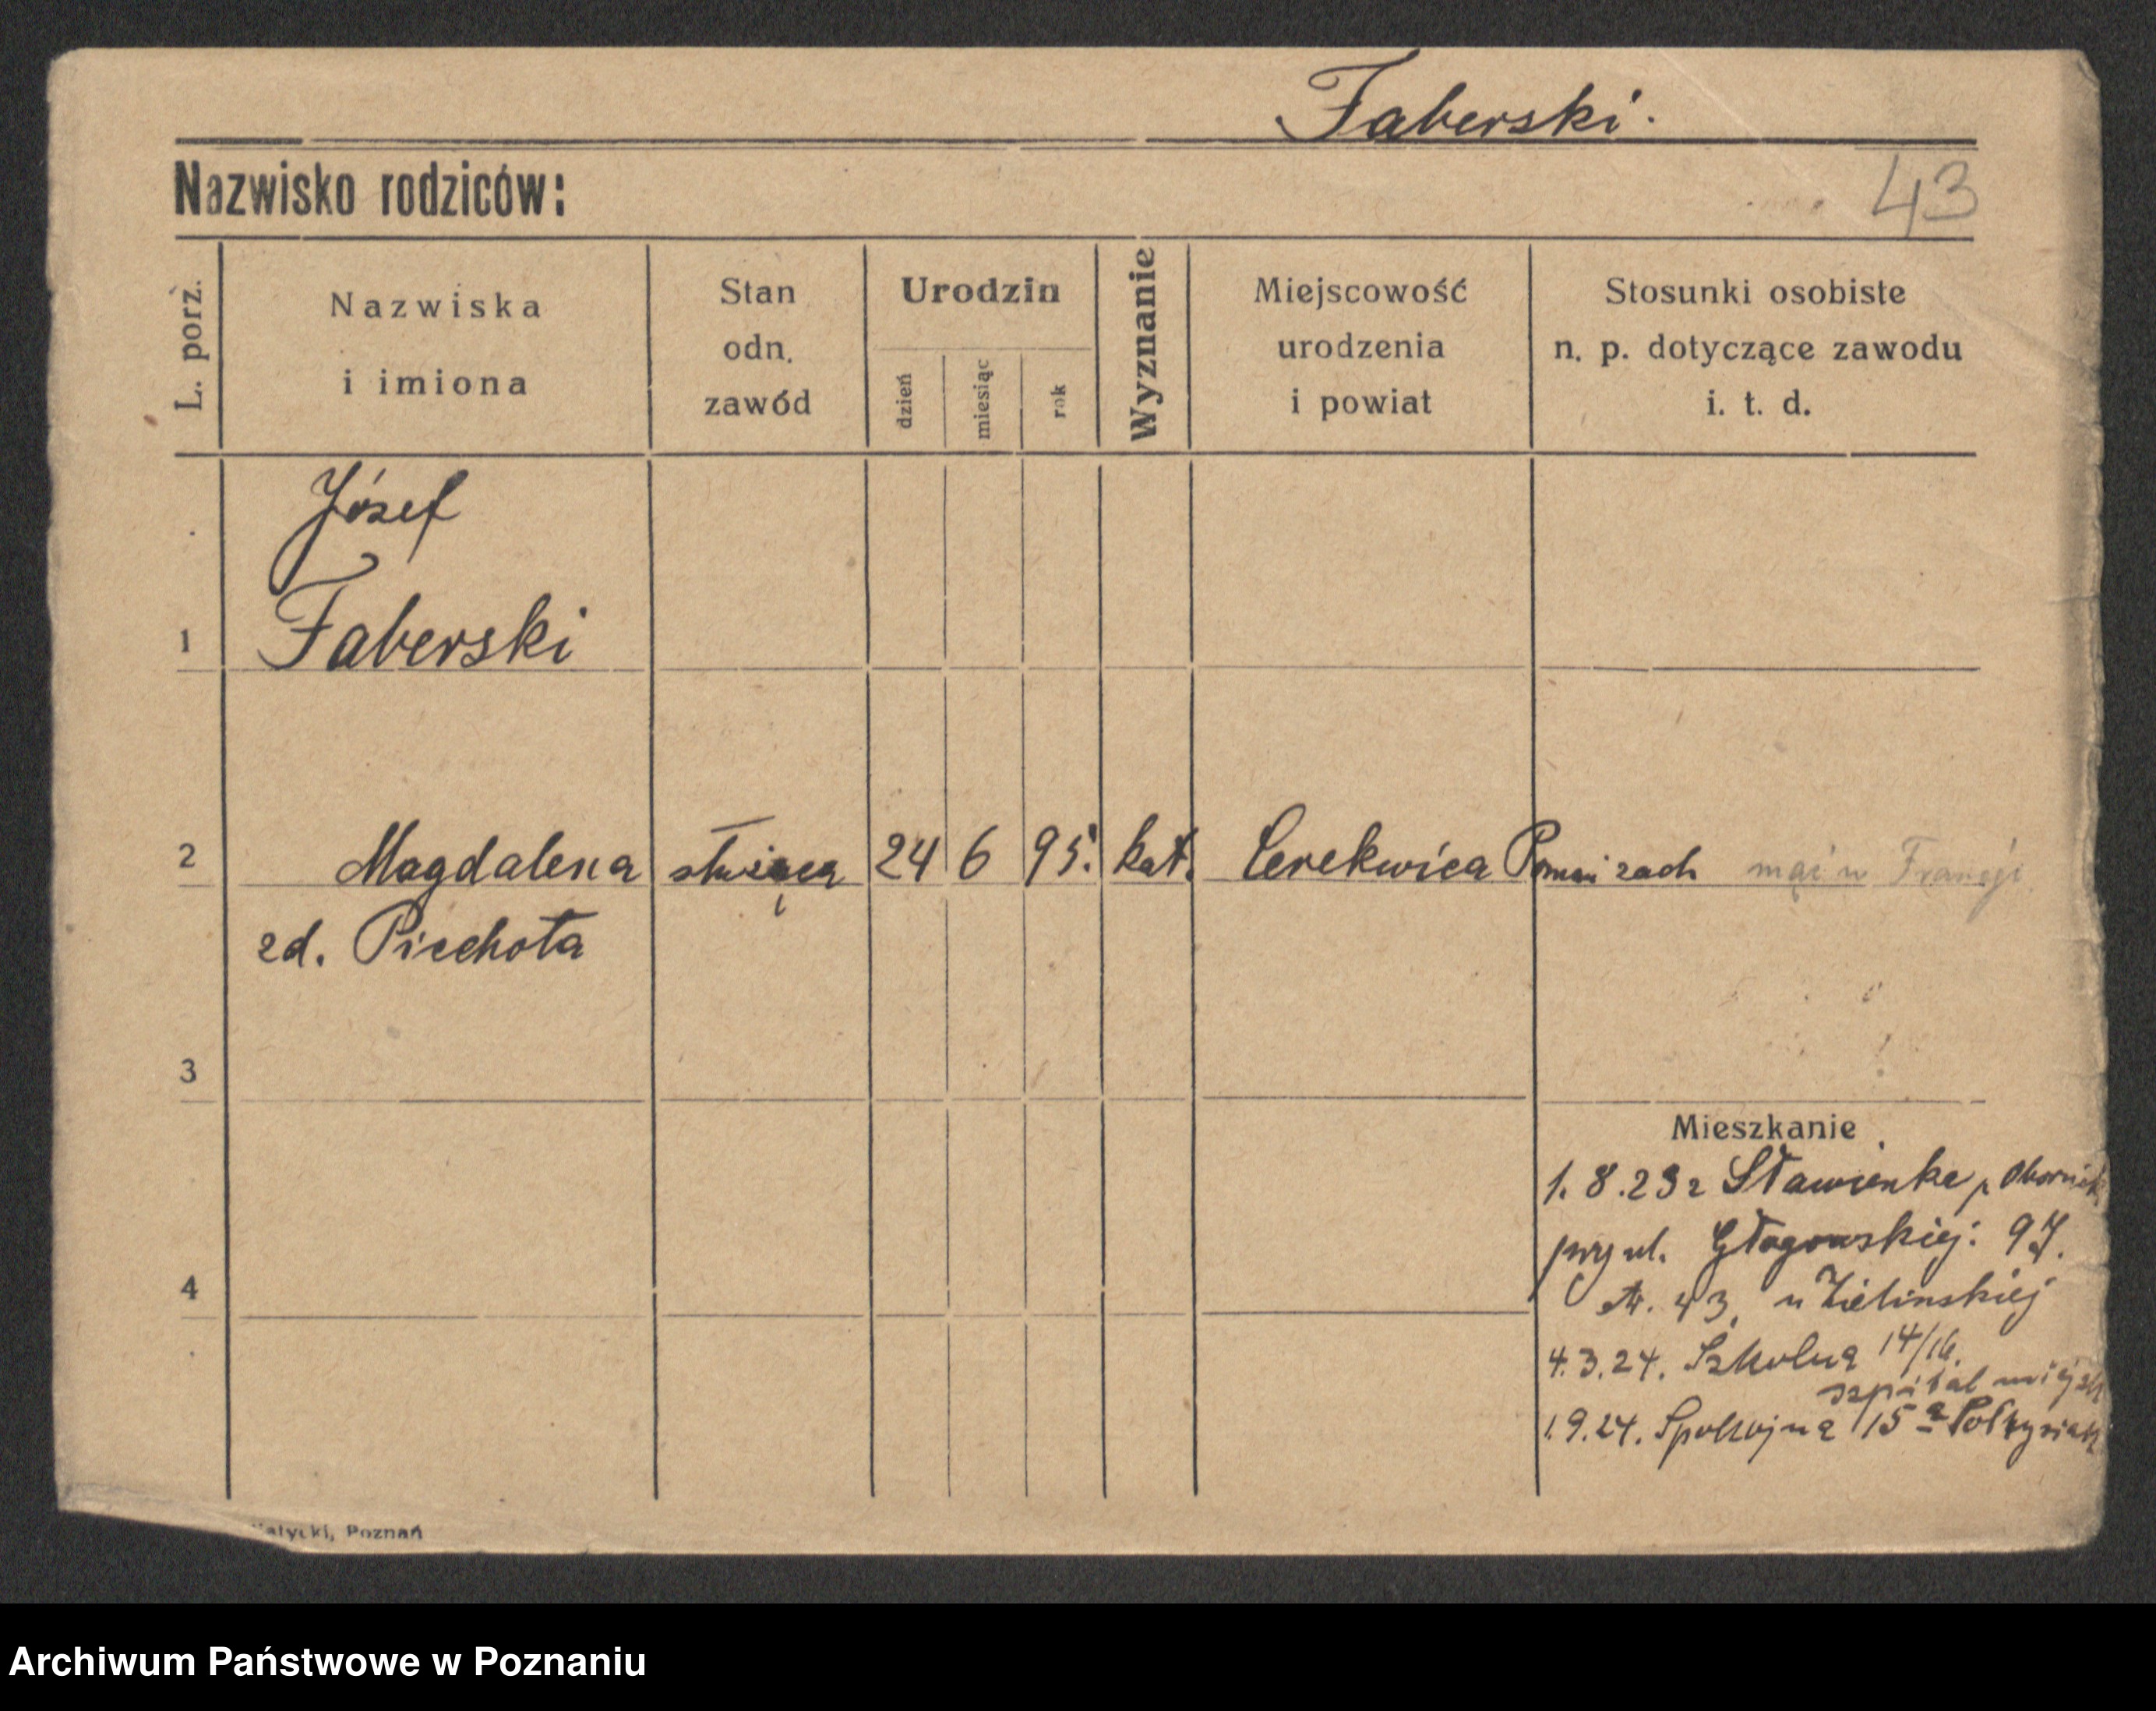 Faberski.
Nazwisko rodziców:
43
L. porz.
Nazwiska
i imiona
Stan
odn.
zawód
Urodzin
dzień
miesiąc
rok
Wyznanie
Miejscowość
urodzenia
i powiat
Stosunki osobiste
n. p. dotyczące zawodu
i. t. d.
Józef
1 Faberski
2 Magdalena służąca 24 6 95. kat. Cerekwica Poznań zach mąż w Francji
zd. Piechota
3
Mieszkanie
1. 8. 23 z Sławienka p. Obornik
przy ul. Głogowskiej: 97.
4
43, u Zielinskiej
4.3.24. Szkolna 14/16.
szpital miejsk
1.9.24. Spokojna 15a
Poznań
Archiwum Państwowe w Poznaniu